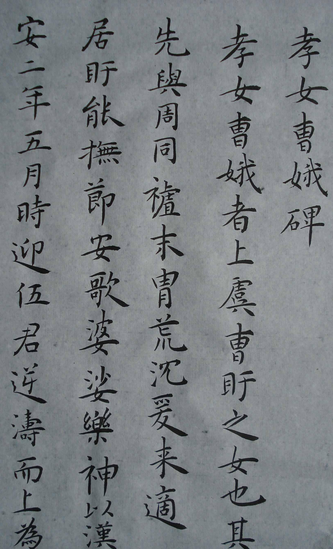 孝女曹娥碑
孝女曹娥者上虞曹盱之女也其
先與周同禇末胄荒沉爰来適
居盱能撫節安歌婆娑樂神以漢
安二年五月時迎伍君逆濤而上為